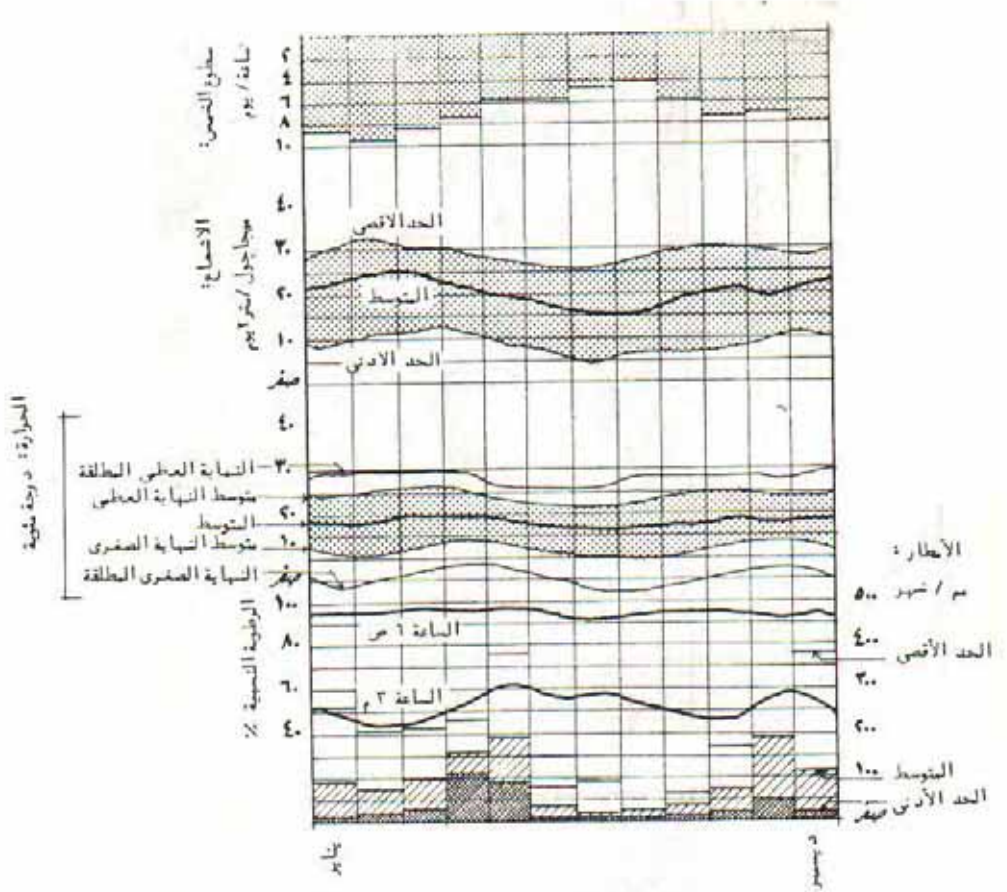 سطوع الشمس:
ساعة / يوم
٢
٤
٦
٨
١٠
الاشعاع:
ميجاجول / متر٢ يوم
٤٠
٣٠
٢٠
١٠
صفر
الحد الاقصى
المتوسط
الحد الادنى
الحرارة: درجة مئوية
٤٠
٣٠
٢٠
١٠
صفر
النهاية العظمى المطلقة
متوسط النهاية العظمى
المتوسط
متوسط النهاية الصغرى
النهاية الصغرى المطلقة
الرطوبة النسبية ٪
١٠٠
٨٠
٦٠
٤٠
الساعة ٦ ص
الساعة ٣ م
الأمطار:
مم / شهر
٥٠٠
٤٠٠
٣٠٠
٢٠٠
١٠٠
صفر
الحد الأقصى
المتوسط
الحد الأدنى
يناير
ديسمبر